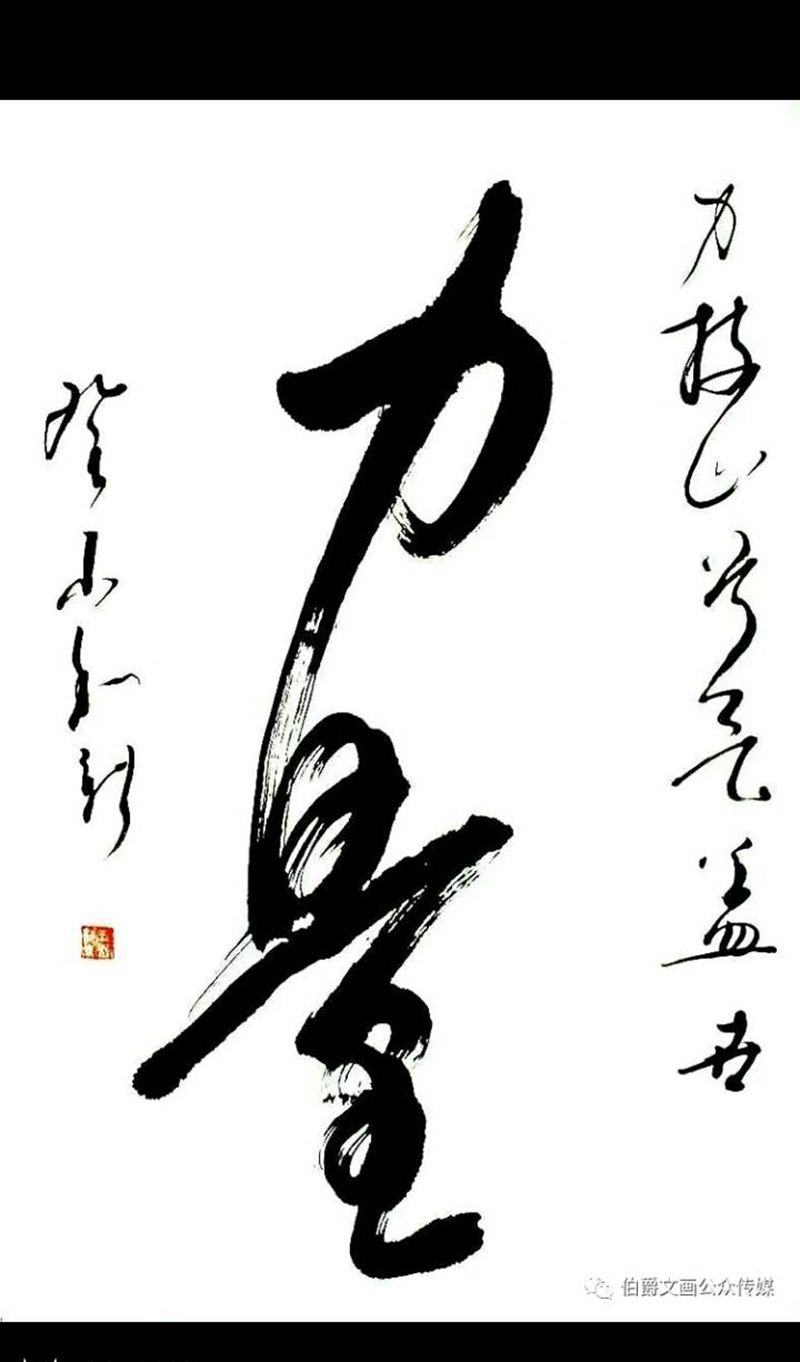 力拔山兮氣盖世
力量
伯爵文画公众传媒